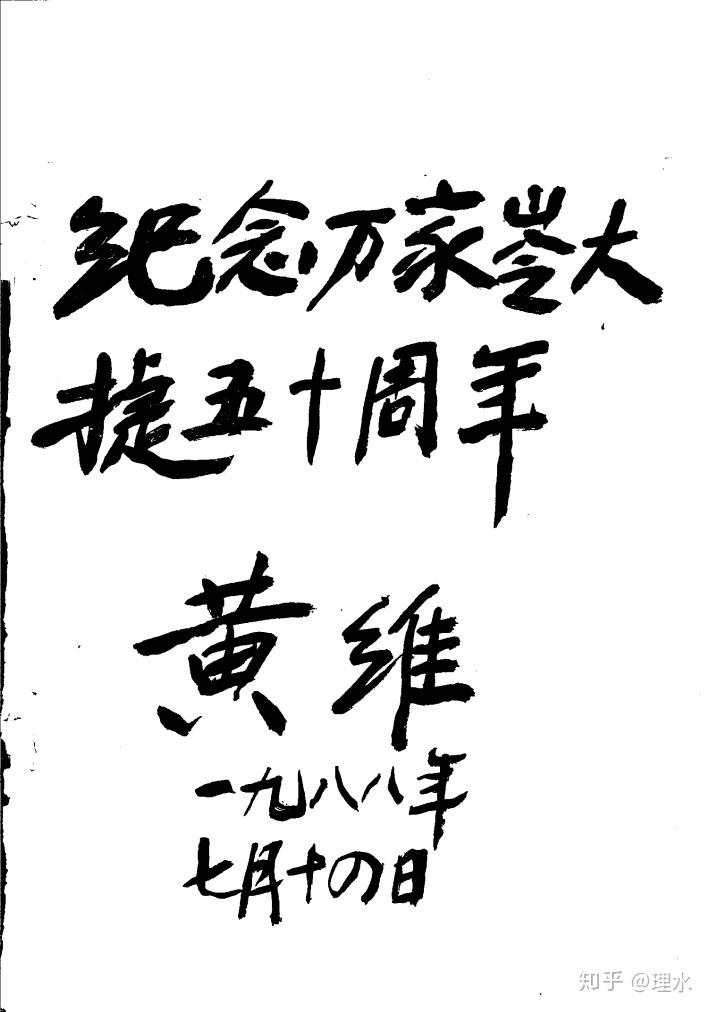 纪念万家岺大
捷五十周年
黄维
一九八八年
七月十四日
知乎 @理水